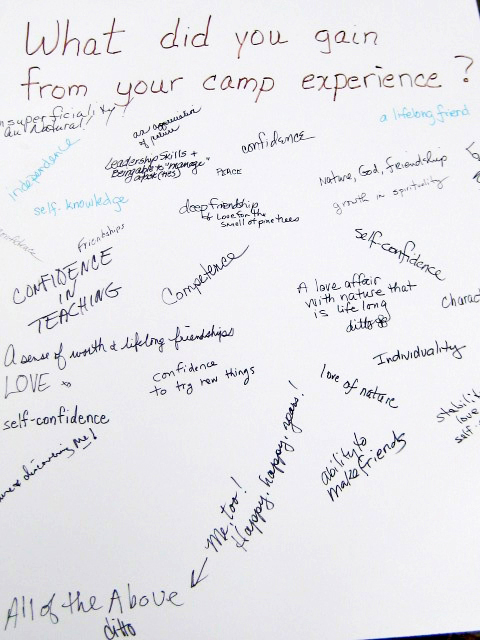 What did you gain
from your camp experience?
superficiality?
au Natural!
an appreciation
of nature
a lifelong friend
independence
confidence
Leadership Skills +
Being able to "manage"
PEACE
Nature, God, friendship
growth in spirituality
self-knowledge
deep friendship
& Love for the
smell of pine trees
confidence
Friendships
self-confidence
CONFIDENCE
IN
TEACHING
Competence
A love affair
with nature that
is life long
ditto
Charac
A sense of worth & lifelong friendships
Individuality
LOVE
confidence
to try new things
love of nature
self-confidence
stabilit
love
self-
& discovering Me!
ability to
make friends
Me, too!
Happy, happy, years!
All of the Above
ditto